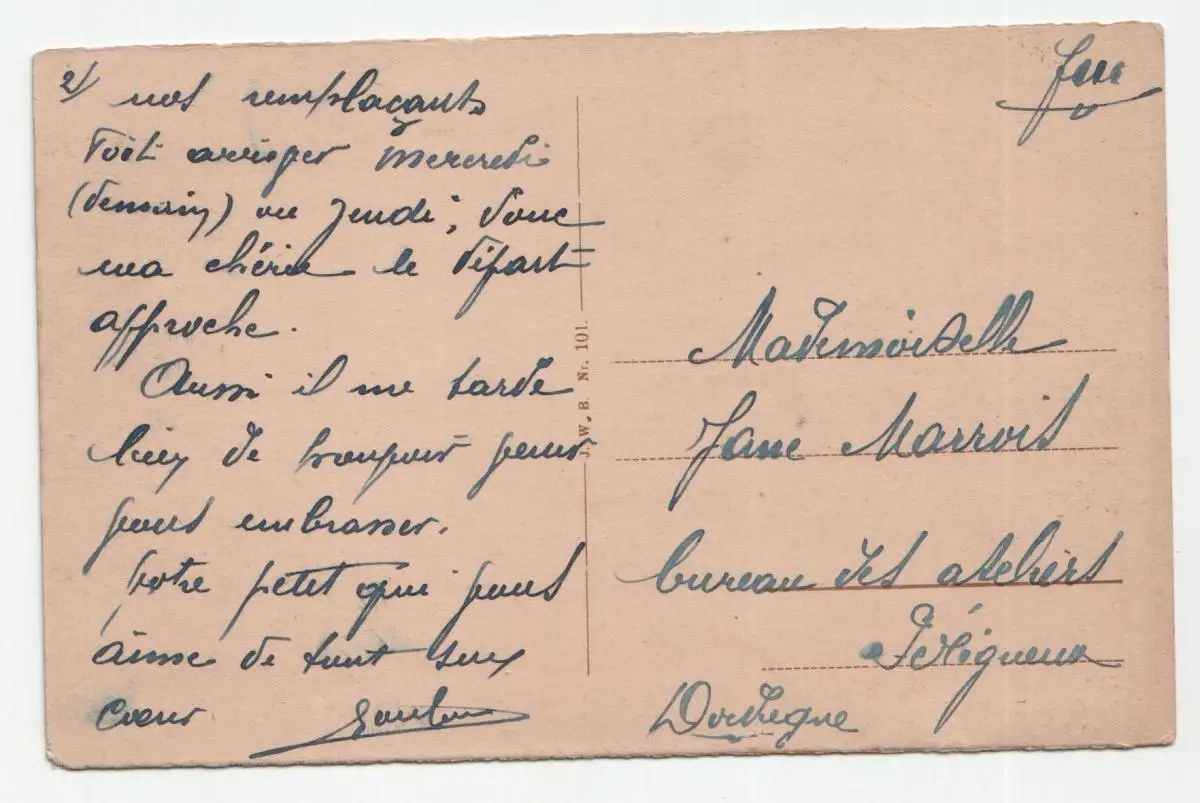 2/
nos remplaçants
doit arriver Mercredi
(demain) ou Jeudi, donc
ma chérie le départ
approche.
Aussi il me tarde
bien de pouvoir
vous embrasser.
votre petit qui vous
aime de tout son
cœur
J. W. B. Nr. 101.
Mademoiselle
Jane Marrois
bureau des ateliers
Périgueux
Dordogne